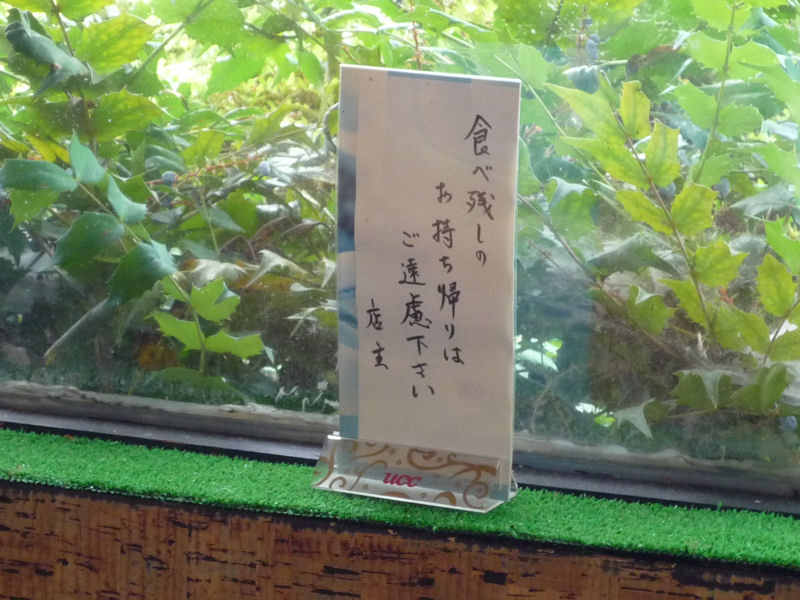 食べ残しの
お持ち帰りは
ご遠慮下さい
店主
ucc